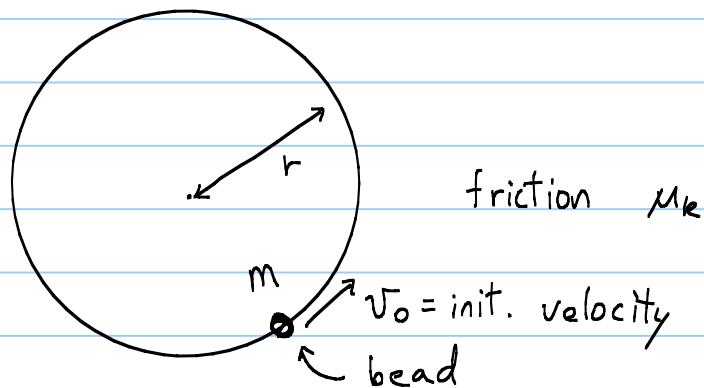 r
friction μk
m
v₀ = init. velocity
bead